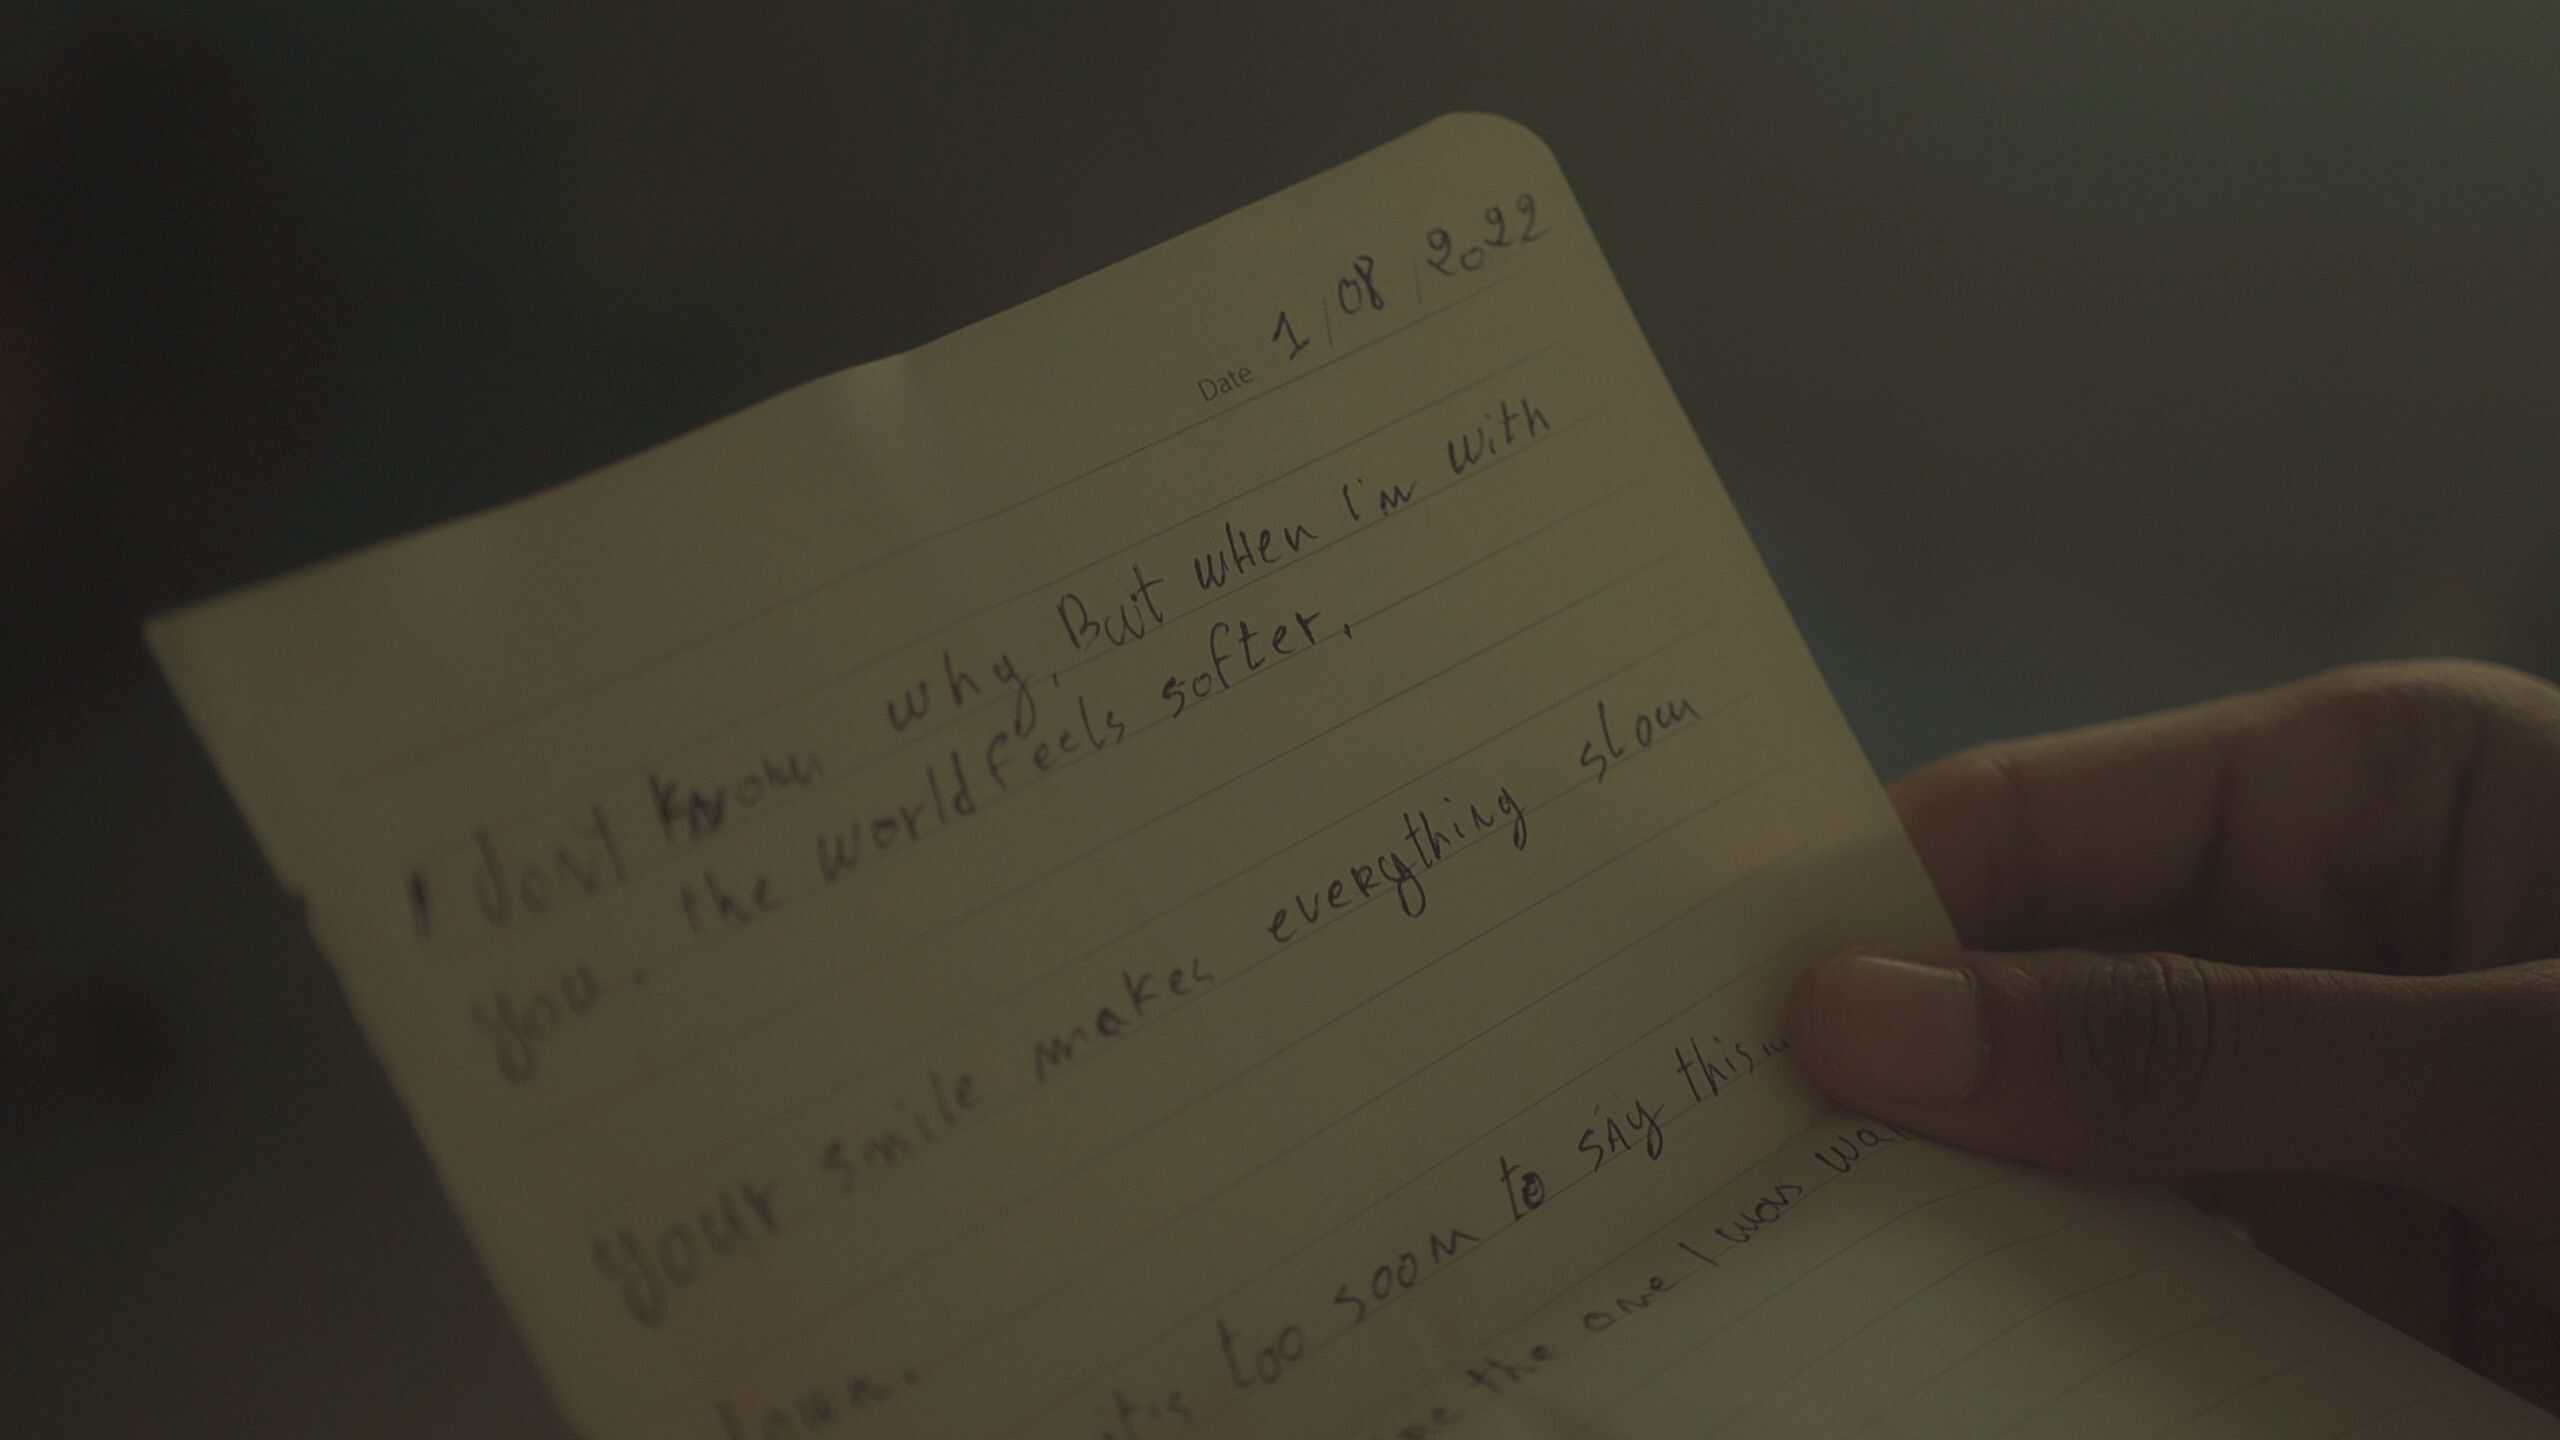 Date 1/08/2022
I don't know why. But wHen I'm with
you. the world feels softer.
Your smile makes everything slow
down.
it's too soon to say this...
the one I was